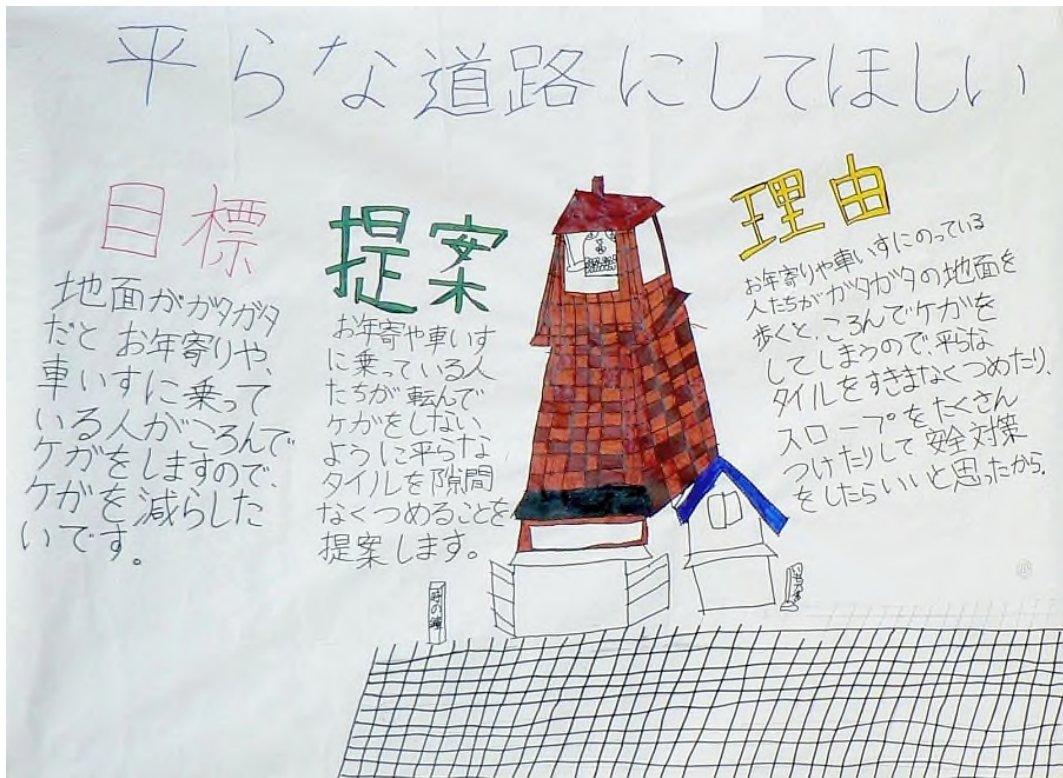 平らな道路にしてほしい
目標
地面がガタガタ
だと お年寄りや、
車いすに乗って
いる人がころんで
ケガをしますので、
ケガを減らした
いです。
提案
お年寄や車いす
に乗っている人
たちが転んで
ケガをしない
ように平らな
タイルを隙間
なくつめることを
提案します。
理由
お年寄りや車いすにのっている
人たちがガタガタの地面を
歩くと、ころんでケガを
してしまうので、平らな
タイルをすきまなくつめたり、
スロープをたくさん
つけたりして安全対策
をしたらいいと思ったから。
時の鐘